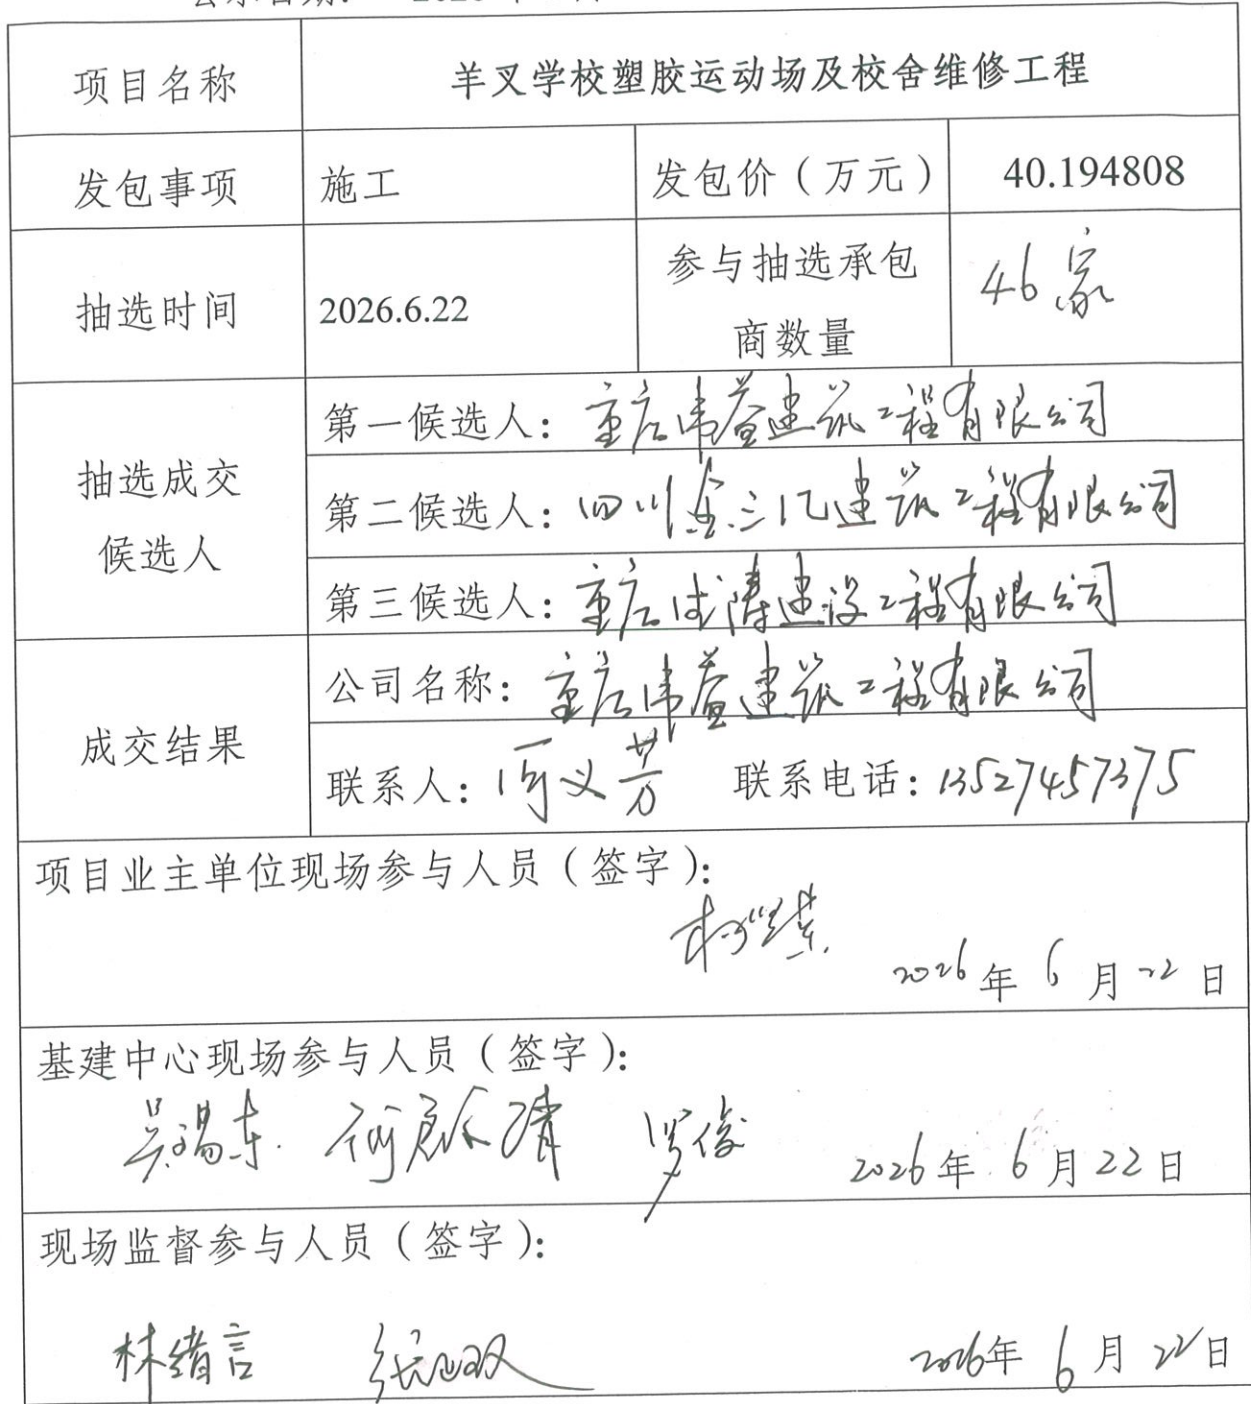 项目名称 羊叉学校塑胶运动场及校舍维修工程
发包事项 施工 发包价（万元） 40.194808
抽选时间 2026.6.22 参与抽选承包商数量 46家
抽选成交候选人
第一候选人：重庆韦益建筑工程有限公司
第二候选人：四川金三亿建筑工程有限公司
第三候选人：重庆建设工程有限公司
成交结果
公司名称：重庆韦益建筑工程有限公司
联系人：何义芳 联系电话：13527457375
项目业主单位现场参与人员（签字）：
2026年6月22日
基建中心现场参与人员（签字）：
罗俊 2026年6月22日
现场监督参与人员（签字）：
林绪言 2026年6月22日